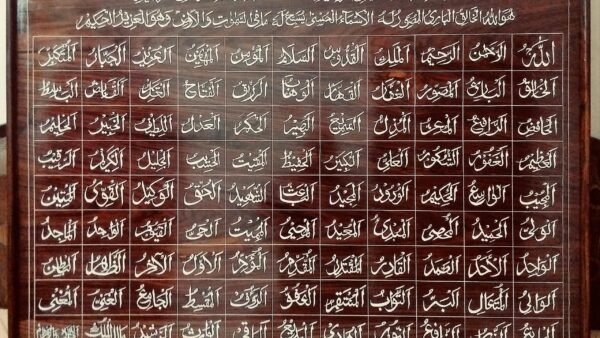 هو الله الخالق البارئ المصور له الاسماء الحسنى يسبح له ما في السموات والارض وهو العزيز الحكيم
الله الرحمن الرحيم الملك القدوس السلام المؤمن المهيمن العزيز الجبار المتكبر
الخالق البارئ المصور الغفار القهار الوهاب الرزاق الفتاح العليم القابض الباسط
الخافض الرافع المعز المذل السميع البصير الحكم العدل اللطيف الخبير الحليم
العظيم الغفور الشكور العلي الكبير الحفيظ المقيت الحسيب الجليل الكريم الرقيب
المجيب الواسع الحكيم الودود المجيد الباعث الشهيد الحق الوكيل القوي المتين
الولي الحميد المحصي المبدئ المعيد المحيي المميت الحي القيوم الواجد الماجد
الواحد الاحد الصمد القادر المقتدر المقدم المؤخر الاول الاخر الظاهر الباطن
الوالي المتعال البر التواب المنتقم العفو الرؤف المقسط الجامع الغني المغني